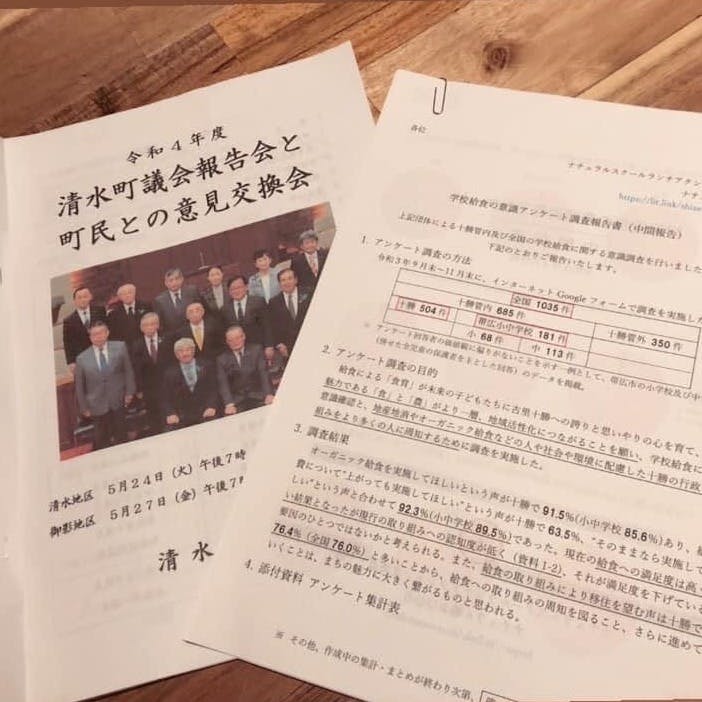 令和4年度
清水町議会報告会と
町民との意見交換会
清水地区 5月24日(火)午後7時
御影地区 5月27日(金)午後7
清水
各位
ナチュラルスクールランチアクシ
ナチ
https://lit.link/shizen
学校給食の意識アンケート調査報告書(中間報告)
上記団体による十勝管内及び全国の学校給食に関する意識調査を行いました
下記のとおりご報告いたします。
1. アンケート調査の方法
令和3年9月末~11月末に、インターネットGoogleフォームで調査を実施した
全国 1035件
十勝管内 685件
十勝管外 350件
十勝 504件
帯広小中学校 181件
小 68件
中 113件
※ アンケート回答者の価値観に偏りがないことを示す一例として、帯広市の小学校及び中
(併せた全児童の保護者を主とした回答)のデータを掲載。
2. アンケート調査の目的
給食による「食育」が未来の子どもたちに古里十勝への誇りと思いやりの心を育て、
魅力である「食」と「農」がより一層、地域活性化につながることを願い、学校給食に
意識確認と、地産地消やオーガニック給食などの人や社会や環境に配慮した十勝の行政
組みをより多くの人に周知するために調査を実施した。
3. 調査結果
オーガニック給食を実施してほしいという声が十勝で 91.5%(小中学校 85.6%)あり、給
費について"上がっても実施してほしい"という声が十勝で 63.5%、"そのままなら実施して
しい"という声と合わせて 92.3%(小中学校 89.5%)であった。現在の給食への満足度は高
い結果となったが現行の取り組みへの認知度が低く(資料1-2)、それが満足度を下げている
要因のひとつではないかと考えられる。また、給食の取り組みにより移住を望む声は十勝で
76.4%(全国 76.0%)と多いことから、給食への取り組みの周知を図ること、さらに進めて
いくことは、まちの魅力に大きく繋がるものと思われる。
4. 添付資料 アンケート集計表
※ その他、作成中の集計・まとめが終わり次第、